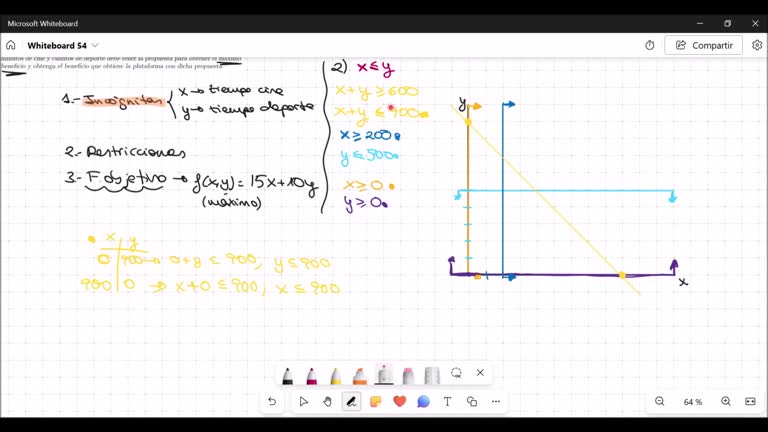 Microsoft Whiteboard
Whiteboard 54
Compartir
minutos de cine y cuántos de deporte debe tener la propuesta para obtener el máximo
beneficio y obtenga el beneficio que obtiene la plataforma con dicha propuesta.
1.- Incógnitas
x → tiempo cine
y → tiempo deporte
2.- Restricciones
3.- F. objetivo → f(x,y) = 15x + 10y
(máximo)
2) x ≤ y
x + y ≥ 600
x + y ≤ 900
x ≥ 200
y ≤ 500
x ≥ 0
y ≥ 0
x y
0 900 → 0 + y ≤ 900, y ≤ 900
900 0 → x + 0 ≤ 900, x ≤ 900
y
x
64 %